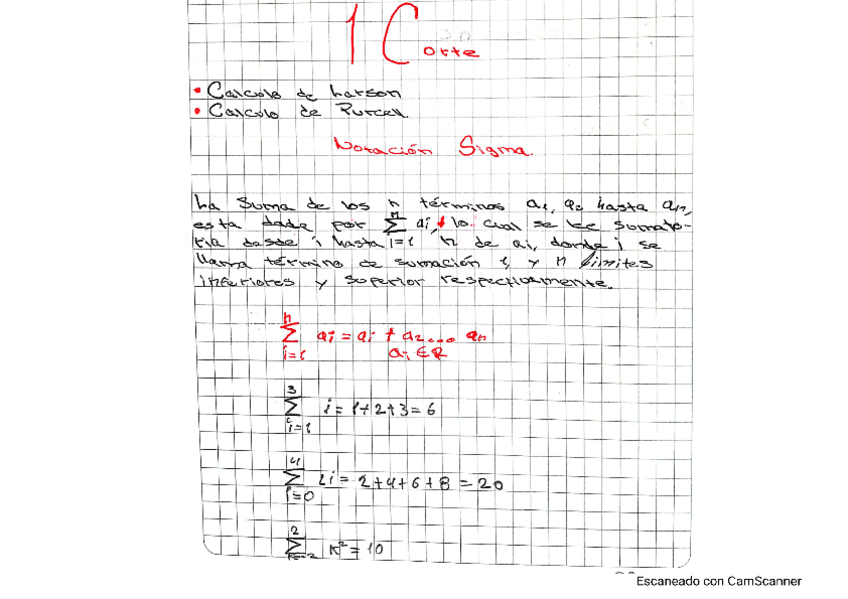 1 Corte
• Calculo de Larson
• Calculo de Purcell.
Notación Sigma.
La Suma de los n términos a1, a2 hasta an,
esta dada por n∑i=1 ai, lo cual se lee sumato-
ria desde i hasta n de ai, donde i se
llama término de sumación 1, y n limites
inferiores y superior respectivamente.
n∑i=1 ai = ai + a2... an
ai ∈ R
3∑i=1 i = 1+2+3=6
4∑i=0 2i = 2+4+6+8 = 20
2∑k=-2 k² = 10
Escaneado con CamScanner